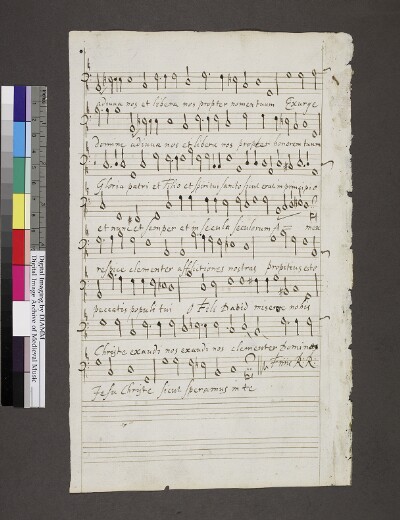 adiuua nos et libera nos propter nomen tuum Exurge
domine adiuua nos et libera nos propter honorem tuum
Gloria patri et filio et spiritui sancto sicut erat in principio
et nunc et semper et in secula seculorum A men
respice clementer afflictiones nostras propitius esto
peccatis populi tui o Fili David miserere nobis
Christe exaudi nos exaudi nos clementer Domine
Finis
Jesu Christe sicut speramus in te
Digital Imaging by DIAMM
Digital Image Archive of Medieval Music